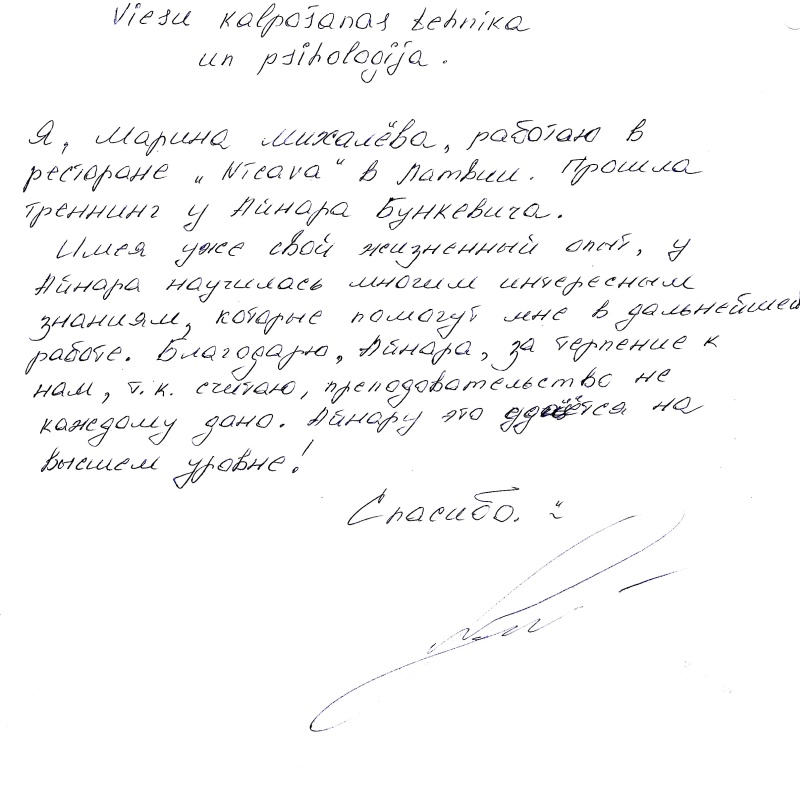 Viesu kalpošanas tehnika
un psiholoģija.
Я, Марина Михалёва, работаю в
ресторане „Nīcava“ в Латвии. Прошла
треннинг у Айнара Бункевича.
Имея уже свой жизненный опыт, у
Айнара научилась многим интересным
знаниям, которые помогут мне в дальнейшей
работе. Благодарю, Айнара, за терпение к
нам, т.к. считаю, преподовательство не
каждому дано. Айнару это даётся на
высшем уровне!
Спасибо.